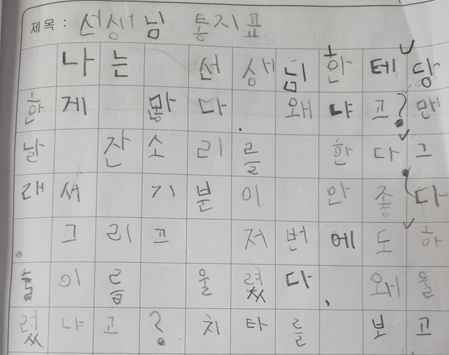 제목 : 선생님 통지표
나는 선생님 한테 당
한게 많다. 왜냐고? 만
날 잔소리를 한다. 그
래써 기분이 안좋다
. 그리고 저번에도 하
늘이를 울렸다. 왜 울
렸냐고? 치타를 보고